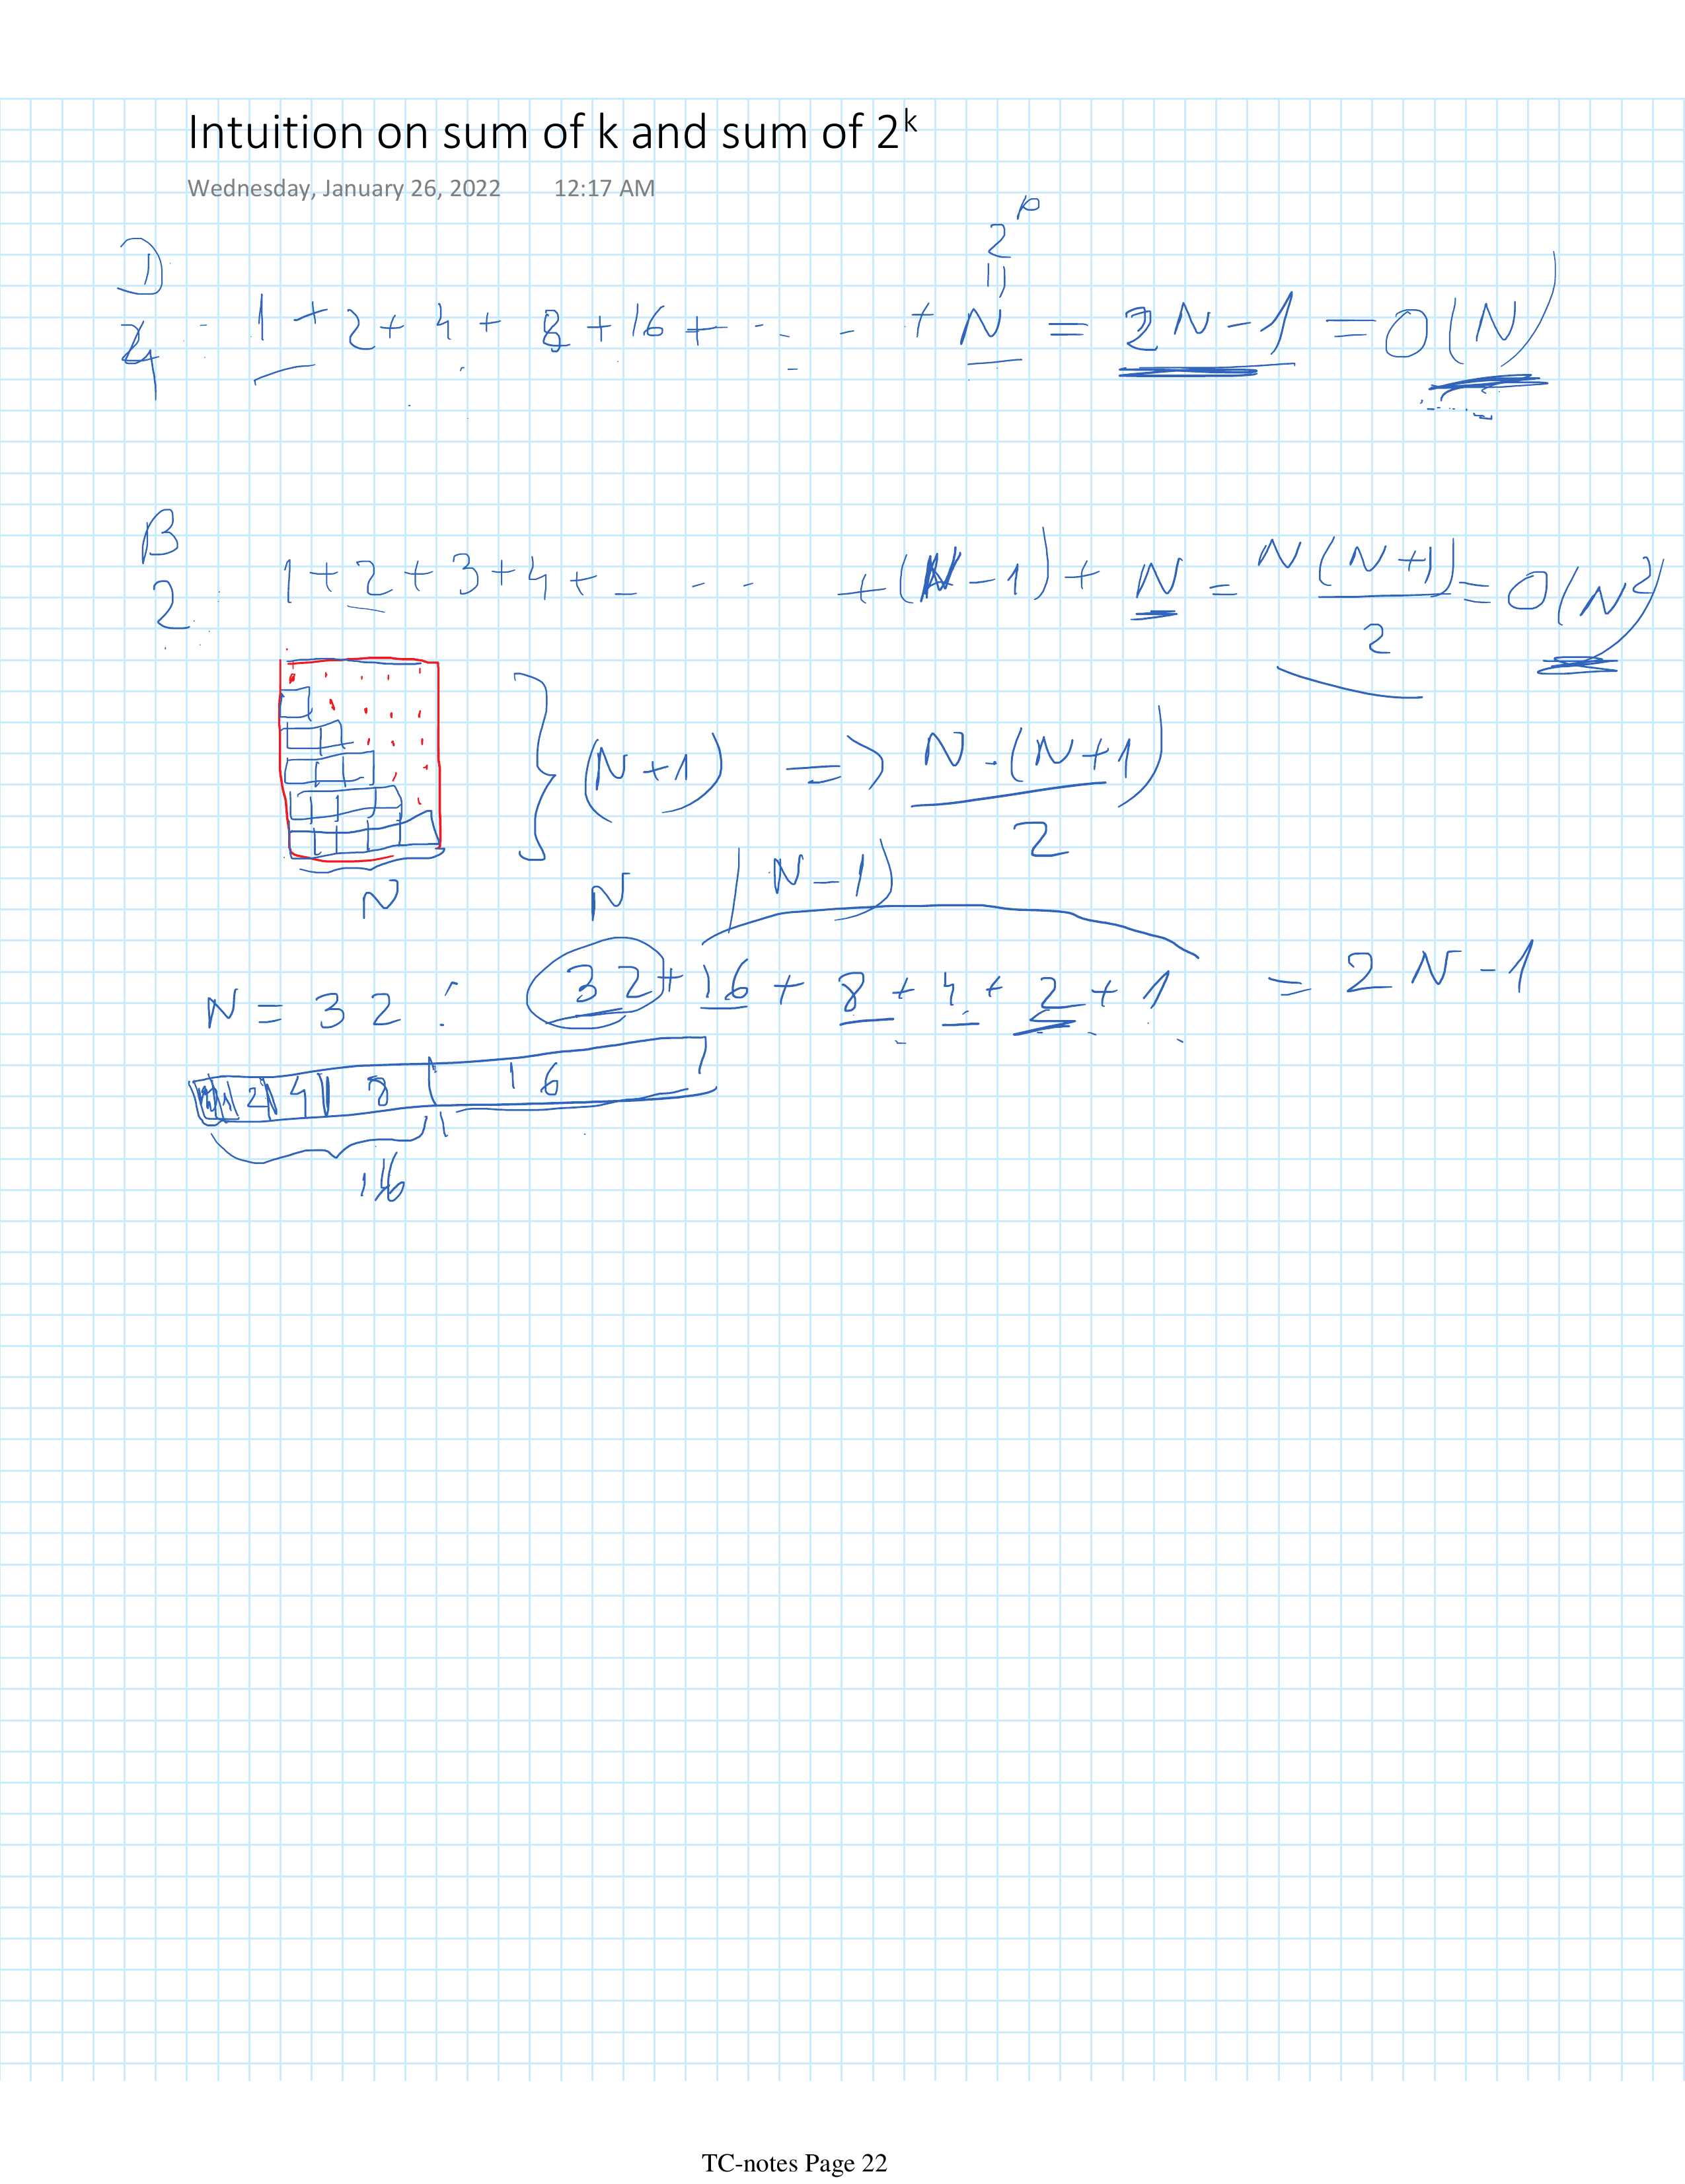 Intuition on sum of k and sum of 2^k
Wednesday, January 26, 2022 12:17 AM
2^p
||
D
4 1 + 2 + 4 + 8 + 16 + - - - + N = 2N - 1 = O(N)
B
2 1 + 2 + 3 + 4 + - - - + (N - 1) + N = N(N+1)/2 = O(N²)
(N+1) => N·(N+1)/2
N
N (N-1)
N = 32: 32 + 16 + 8 + 4 + 2 + 1 = 2N - 1
1 2 4 8 16
16
TC-notes Page 22